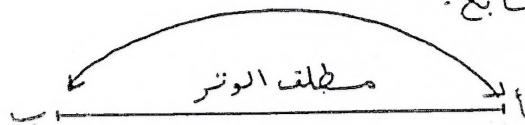 مطلق الوتر
أ ب